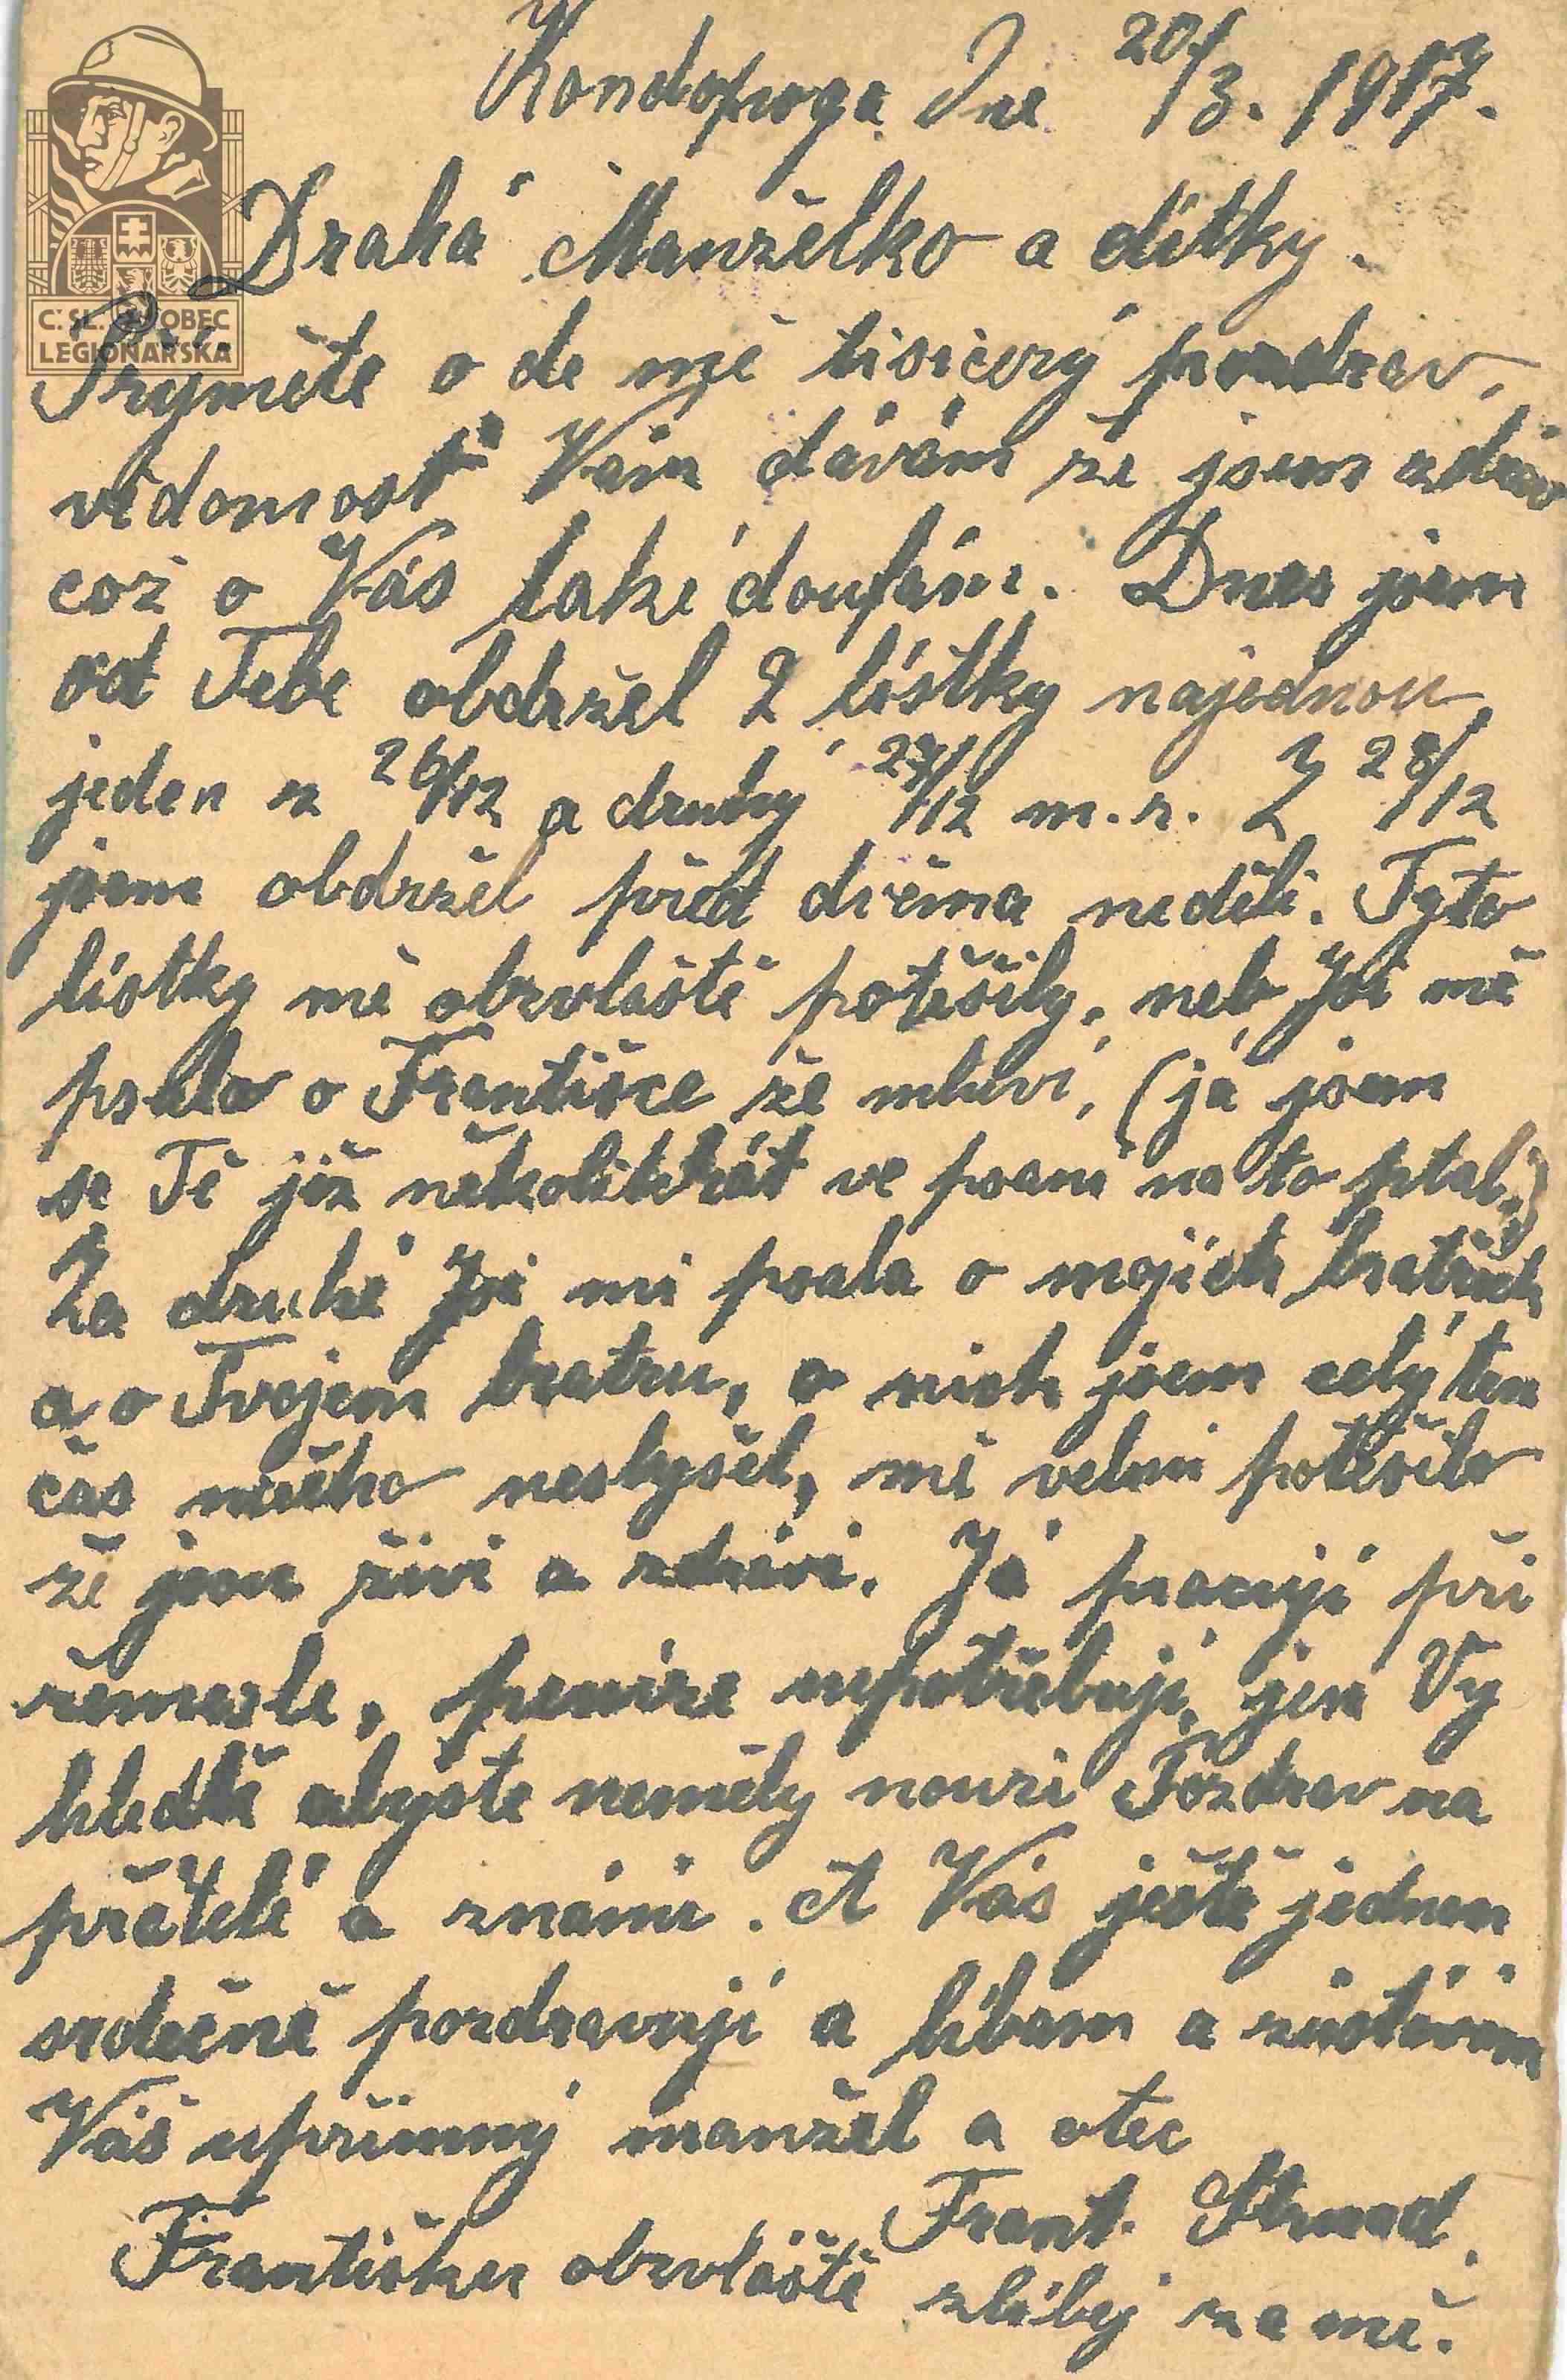 Kondopoga Dne 20/3. 1917.
Drahá Manželko a dítky.
C.SL. OBEC
LEGIONÁŘSKÁ
Prijměte o de mě tisicerý pozdrav,
vědomosť Vám dávám že jsem zdráv
což o Vás také doufám. Dnes jsem
od Tebe obdržel 2 lístky najednou,
jeden z 26/12 a druhy 27/12 m. r. Z 28/12
jsem obdržel před dvěma neděli. Tyto
lístky mě obzvláště potěšily, neb Jsi mě
psala o Františce že mluví, (já jsem
se Tě již několikkrát ve psaní na to ptal.)
Za druhé Jsi mi psala o mojich bratřich
a o Tvojem bratru, o nich jsem celý ten
čas ničeho neslyšel, mě velmi potěšilo
že jsou živi a zdrávi. Já pracuji při
řemesle, penize nepotřebuji, jen Vy
hleďtě abyste neměly nouzi Pozdrav na
přátelé a známé. A Vás ještě jednou
srdečně pozdravuji a líbám a zůstávám
Váš upřímný manžel a otec
Frant. Strnad.
Františku obzvláště zlíbej za mě.